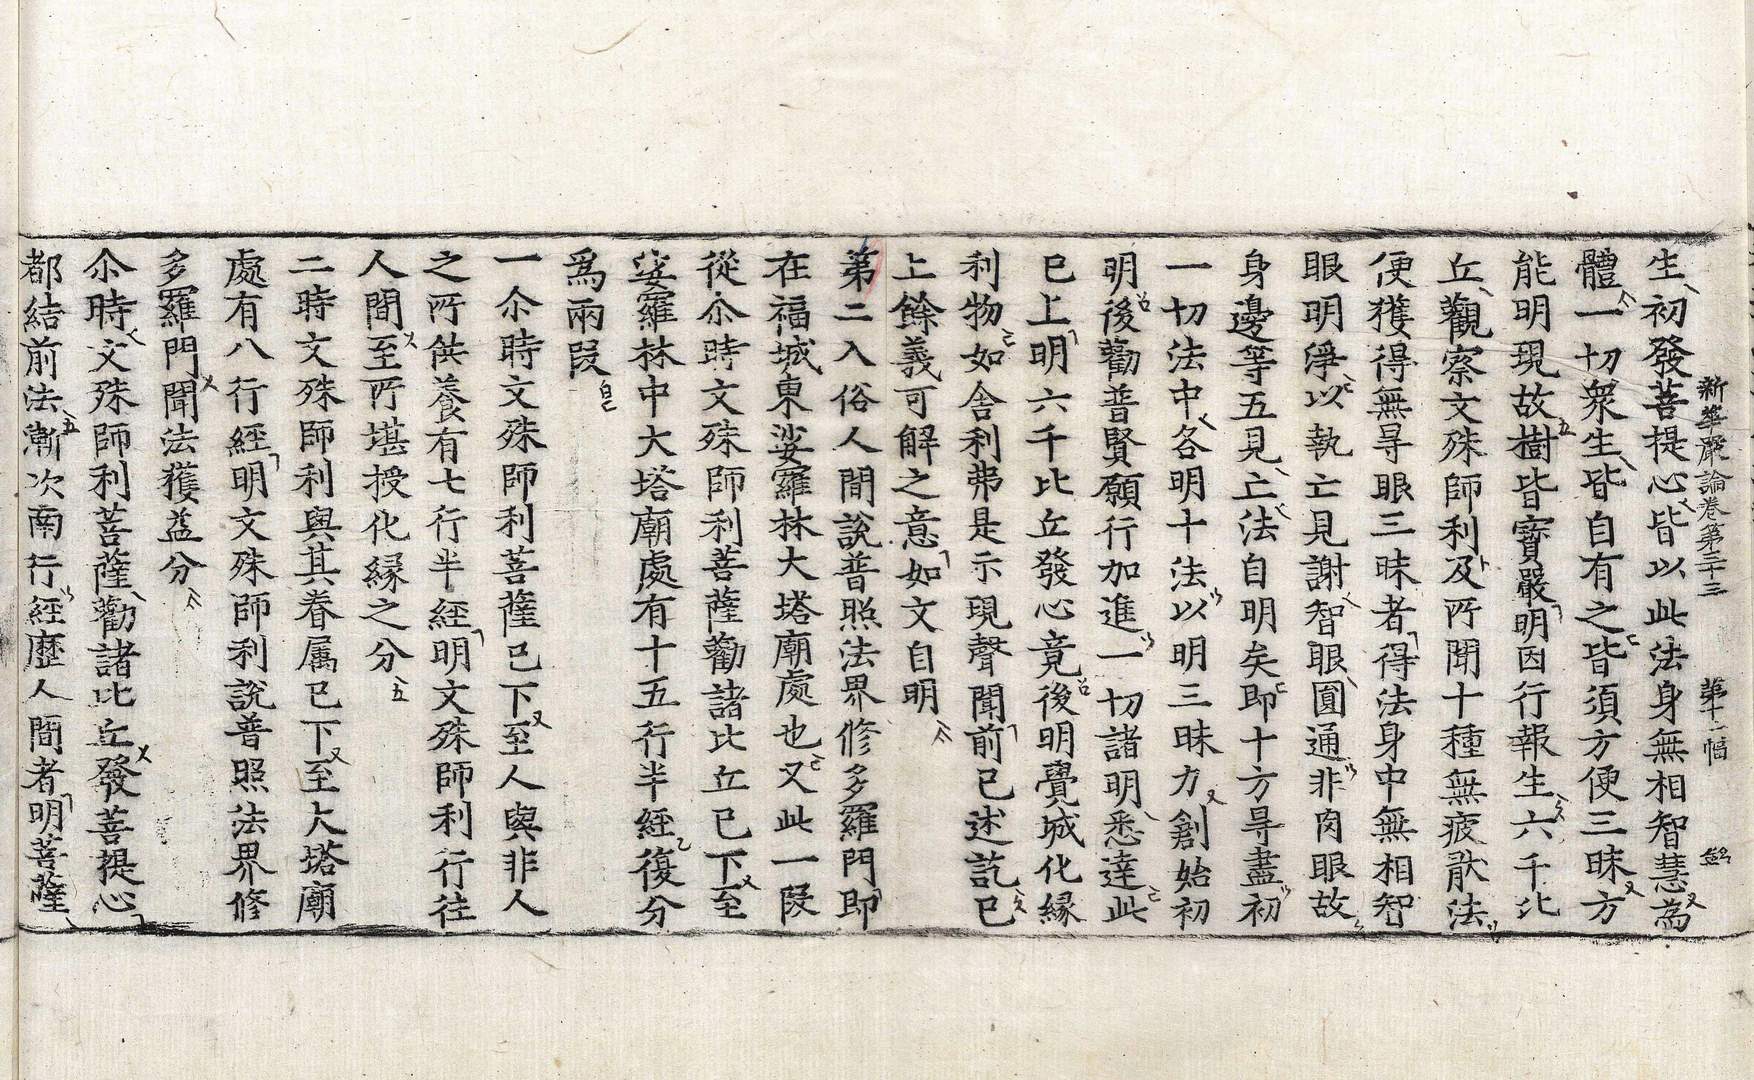 新華嚴論卷第三十三 第十二幅 銘
生初發菩提心皆以此法身無相智慧為
體一切衆生皆自有之皆須方便三昧方
能明現故樹皆寳嚴明因行報生六千比
丘觀察文殊師利及所聞十種無疲猒法
便獲得無㝵眼三昧者得法身中無相智
眼明淨以執亡見謝智眼圓通非肉眼故
身邊等五見亡法自明矣即十方㝵盡初
一切法中各明十法以明三昧力創始初
明後勸普賢願行加進一切諸明悉達此
已上明六千比丘發心竟後明覺城化緣
利物如舍利弗是示現聲聞前已述訖已
上餘義可解之意如文自明
第二入俗人間說普照法界修多羅門即
在福城東娑羅林大塔廟處也又此一叚
從尒時文殊師利菩薩勸諸比丘已下至
娑羅林中大塔廟處有十五行半經復分
爲兩叚
一尒時文殊師利菩薩已下至人與非人
之所供養有七行半經明文殊師利行往
人間至所堪授化緣之分
二時文殊師利與其眷属已下至大塔廟
處有八行經明文殊師利說普照法界修
多羅門聞法獲益分
尒時文殊師利菩薩勸諸比丘發菩提心
都結前法漸次南行經歷人間者明菩薩